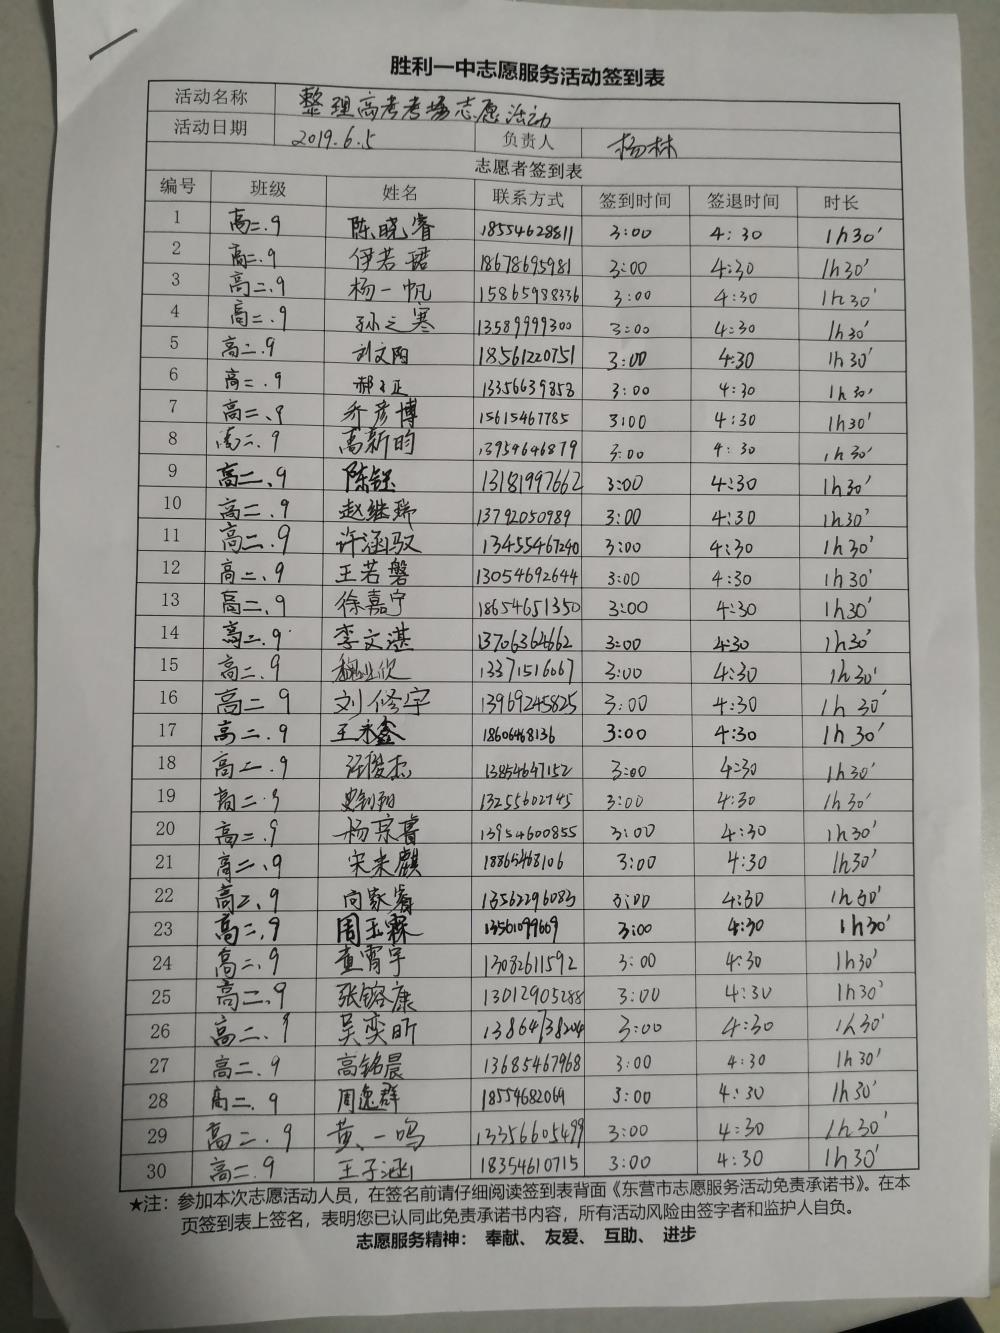 胜利一中志愿服务活动签到表
活动名称 整理高考考场志愿活动
活动日期 2019.6.5 负责人 杨林
志愿者签到表
编号 班级 姓名 联系方式 签到时间 签退时间 时长
1 高二.9 陈晓睿 18554628811 3:00 4:30 1h30'
2 高二.9 伊若珺 18678695981 3:00 4:30 1h30'
3 高二.9 杨一帆 15865988336 3:00 4:30 1h30'
4 高二.9 孙之寒 13589999300 3:00 4:30 1h30'
5 高二.9 刘文阳 18561220751 3:00 4:30 1h30'
6 高二.9 郝文正 13356639858 3:00 4:30 1h30'
7 高二、9 乔彦博 15615467785 3:00 4:30 1h30'
8 高二、9 高新昀 13954646879 3:00 4:30 1h30'
9 高二、9 陈 13181997662 3:00 4:30 1h30'
10 高二.9 赵继瑞 13792050989 3:00 4:30 1h30'
11 高二.9 许涵驭 13455467240 3:00 4:30 1h30'
12 高二、9 王若磐 13054692644 3:00 4:30 1h30'
13 高二、9 徐嘉宁 18654651350 3:00 4:30 1h30'
14 高二.9 李文湛 13706364662 3:00 4:30 1h30'
15 高二.9 13371516667 3:00 4:30 1h30'
16 高二.9 刘修宇 13969245825 3:00 4:30 1h30'
17 高二.9 王永鑫 18606468136 3:00 4:30 1h30'
18 高二.9 汪俊杰 13854647152 3:00 4:30 1h30'
19 高二.9 史钊翔 13255602745 3:00 4:30 1h30'
20 高二.9 杨琮睿 13954600855 3:00 4:30 1h30'
21 高二、9 宋来麒 18865468106 3:00 4:30 1h30'
22 高二、9 向家睿 13562296083 3:00 4:30 1h30'
23 高二.9 周玉霖 13561099609 3:00 4:30 1h30'
24 高二、9 董霄宇 13082611592 3:00 4:30 1h30'
25 高二.9 张镕康 13012905288 3:00 4:30 1h30'
26 高二.9 吴奕昕 13864738204 3:00 4:30 1h30'
27 高二.9 高铭晨 13685467968 3:00 4:30 1h30'
28 高二.9 周逸群 18554682069 3:00 4:30 1h30'
29 高二.9 黄一鸣 13356605499 3:00 4:30 1h30'
30 高二.9 王子涵 18354610715 3:00 4:30 1h30'
★注：参加本次志愿活动人员，在签名前请仔细阅读签到表背面《东营市志愿服务活动免责承诺书》。在本
页签到表上签名，表明您已认同此免责承诺书内容，所有活动风险由签字者和监护人自负。
志愿服务精神： 奉献、 友爱、 互助、 进步